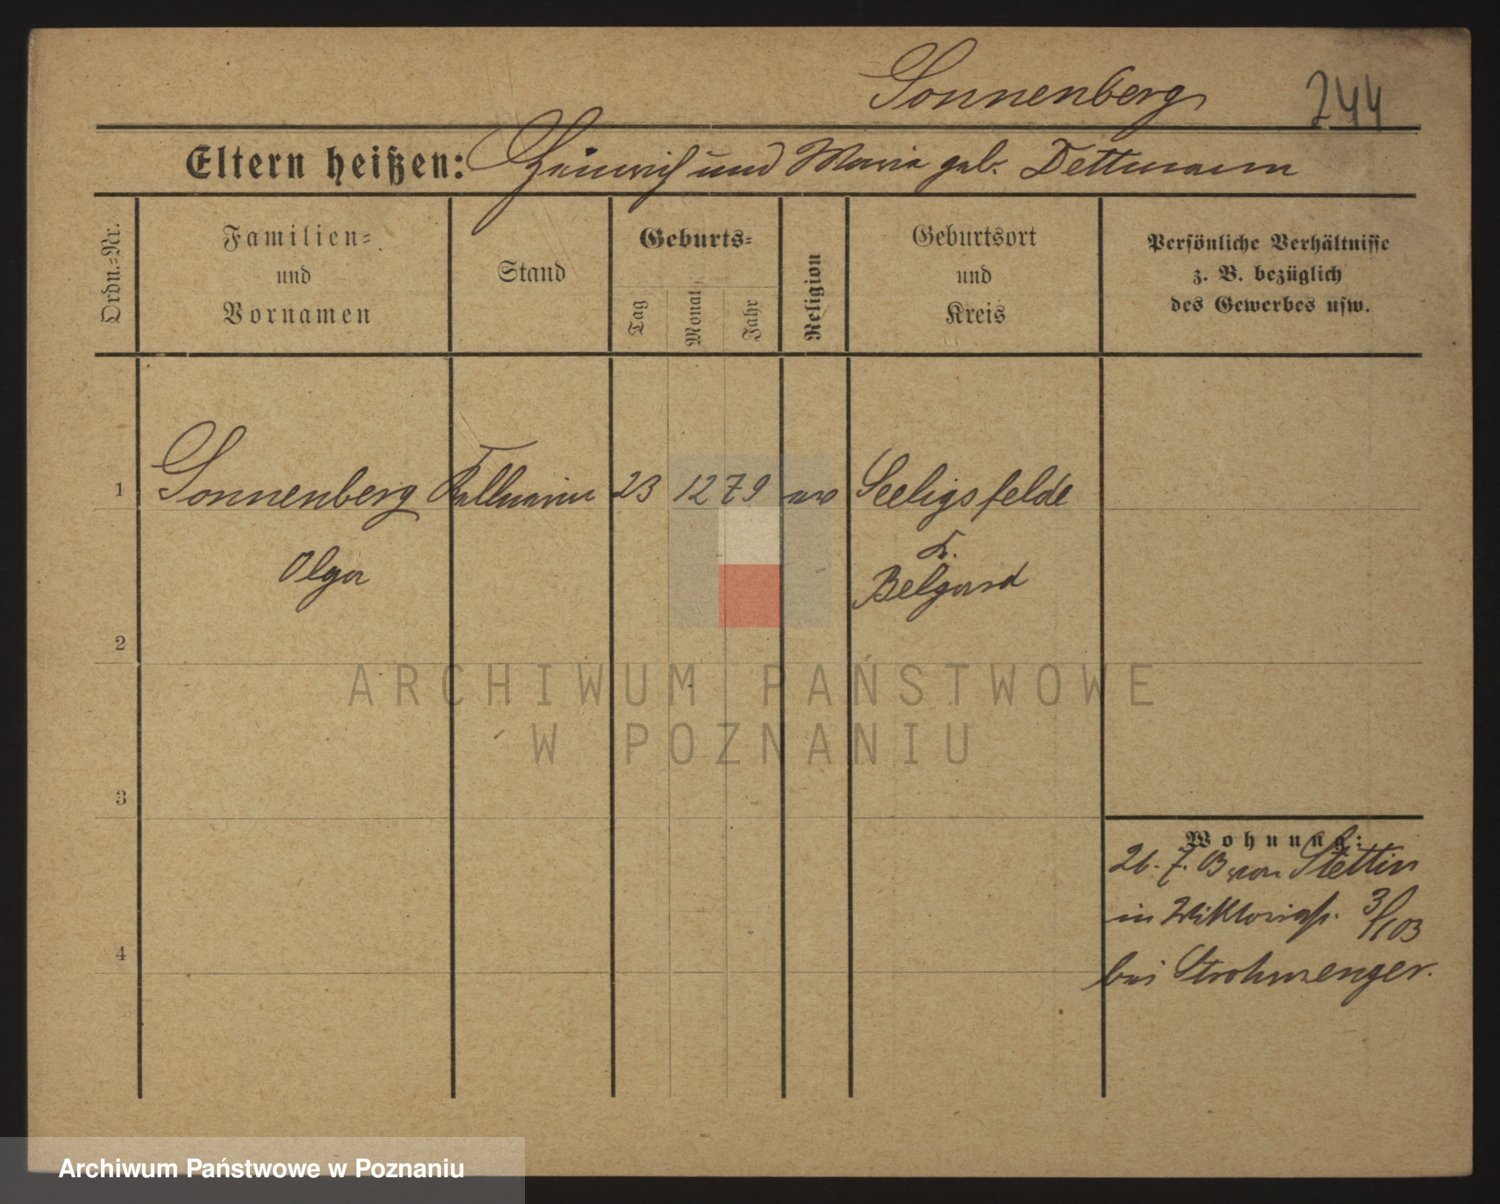 Sonnenberg 244
Eltern heißen: Heinrich und Maria geb. Dettmann
Ordn.-Nr.
Familien-
und
Vornamen
Stand
Geburts-
Tag
Monat
Jahr
Religion
Geburtsort
und
Kreis
Persönliche Verhältnisse
z. B. bezüglich
des Gewerbes usw.
1 Sonnenberg Kellnerin 23 12 79 ev Seeligsfelde
Olga
K.
Belgard
2
3
4
Wohnung:
26. 7. 03 von Stettin
in Viktoriastr.
bei Strohmenger.
ARCHIWUM PAŃSTWOWE
W POZNANIU
Archiwum Państwowe w Poznaniu